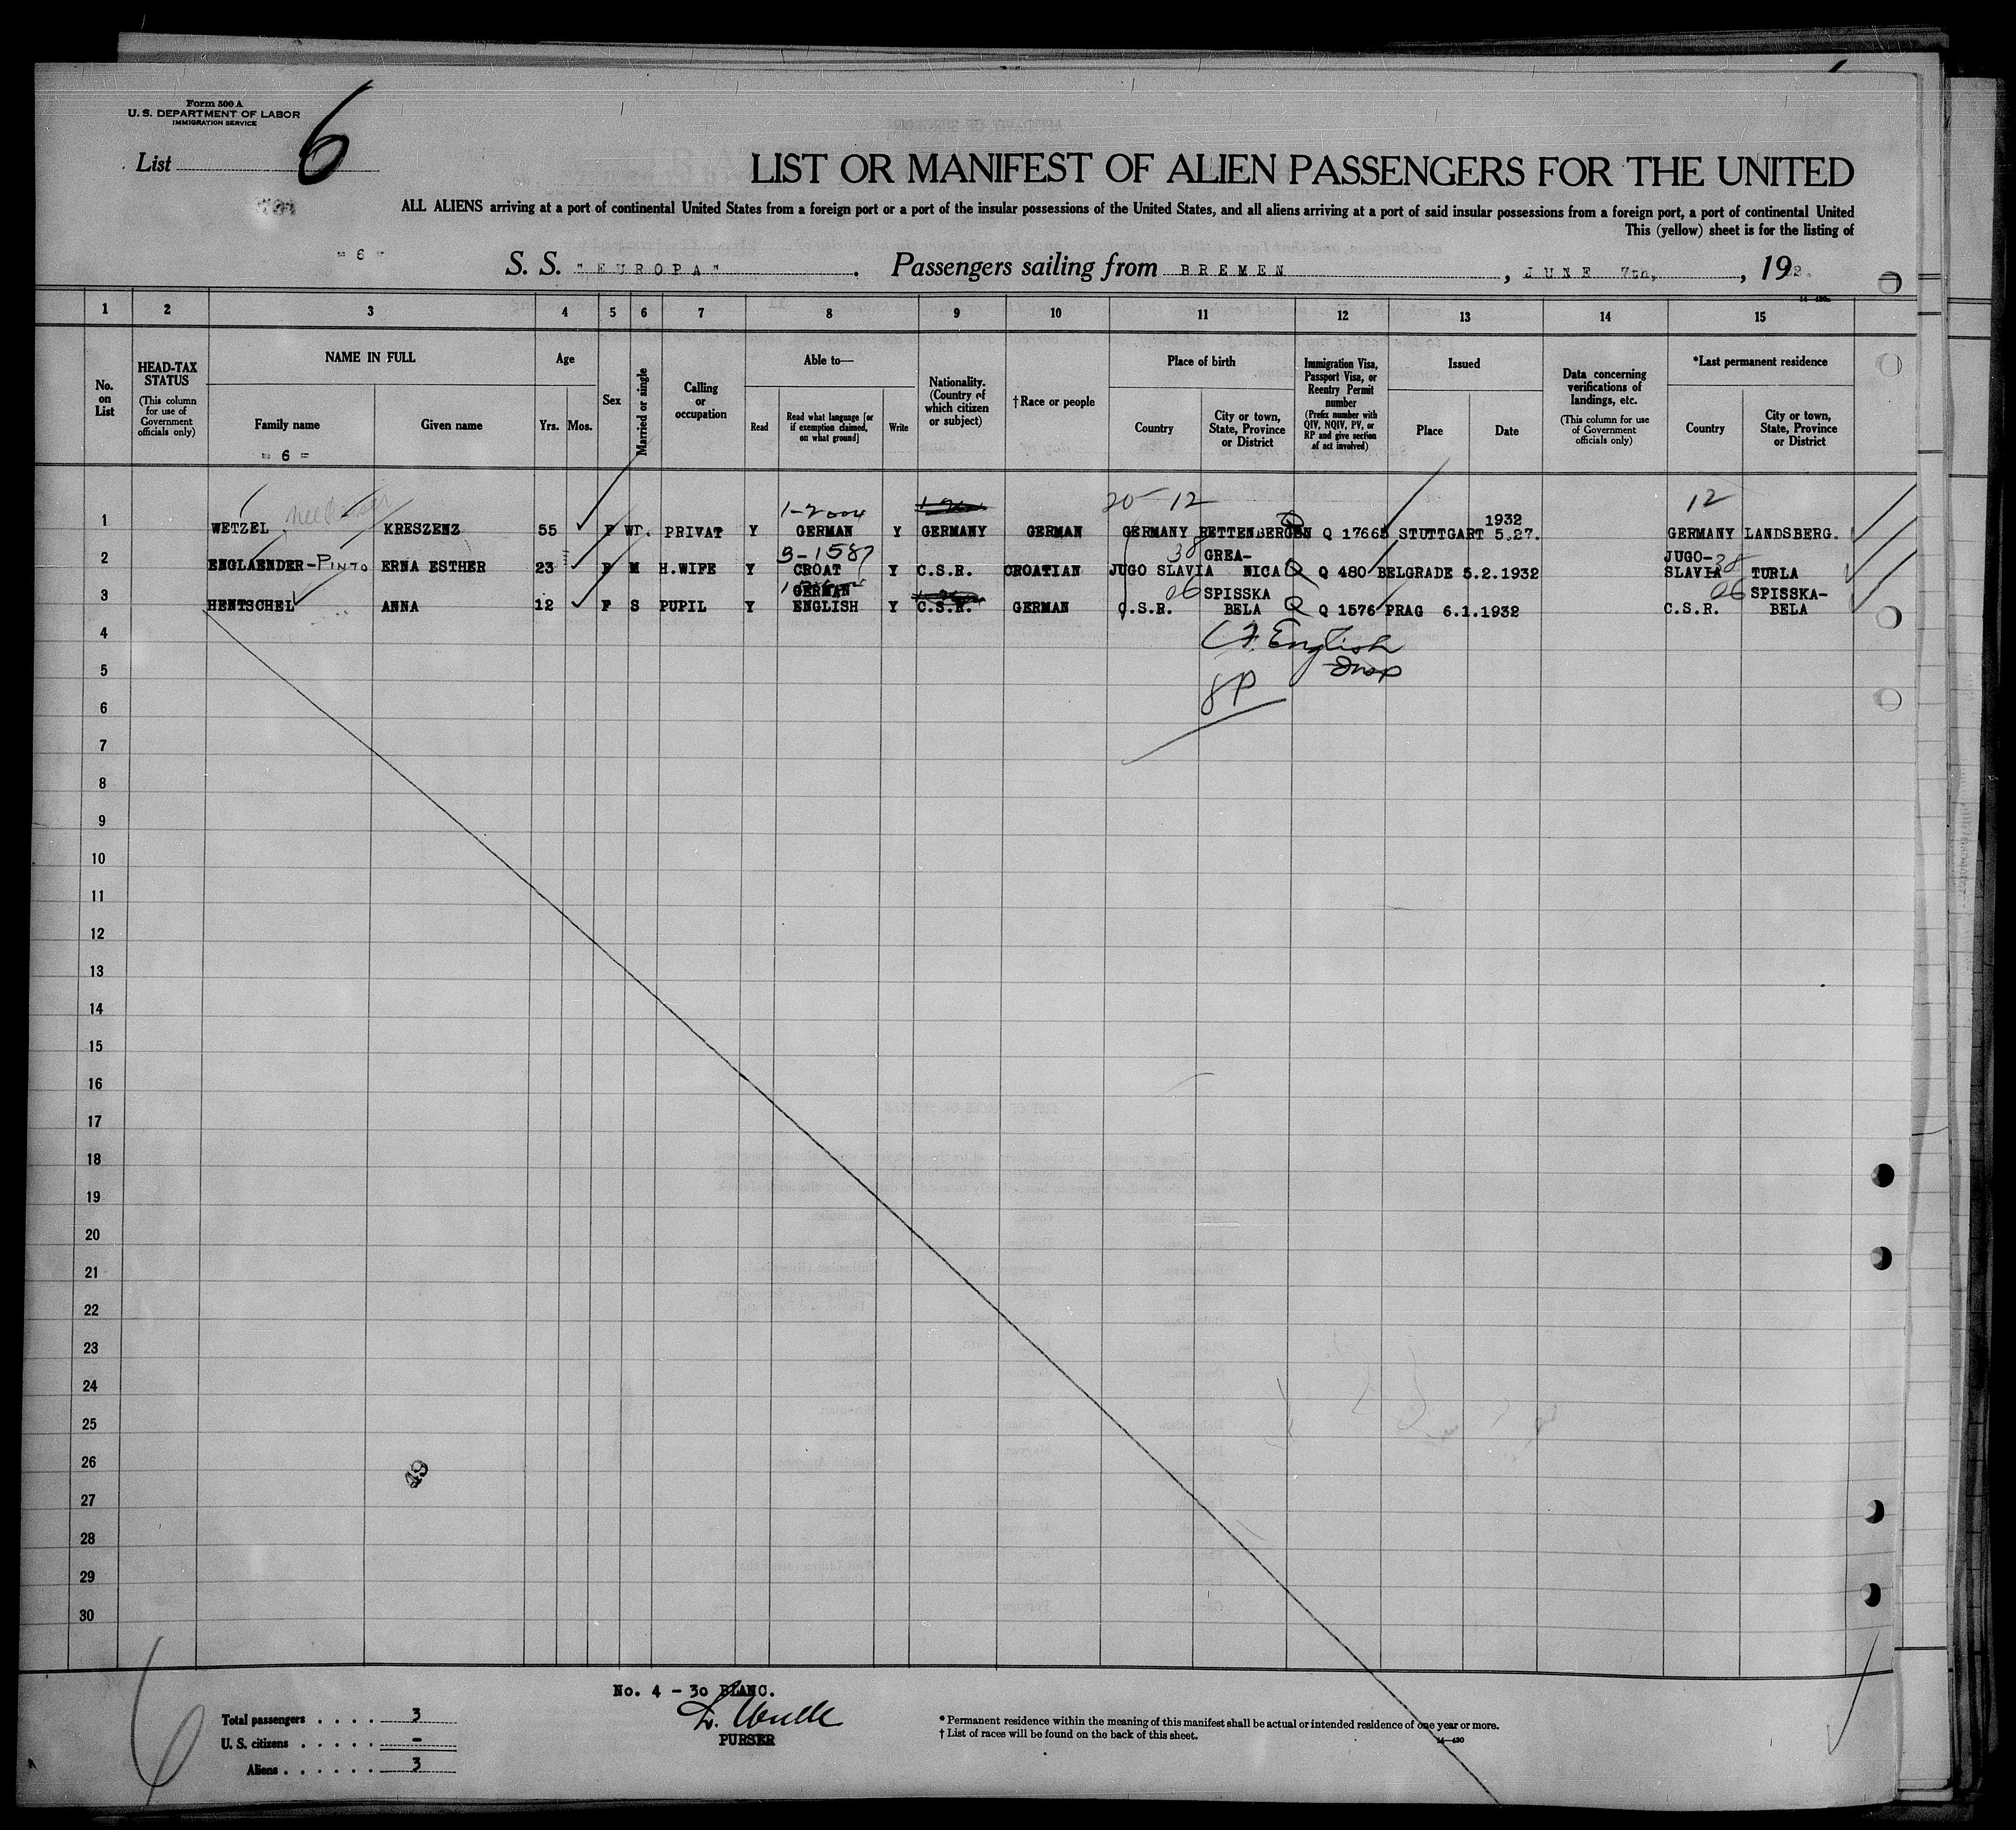 Form 500 A
U. S. DEPARTMENT OF LABOR
IMMIGRATION SERVICE
List 6
LIST OR MANIFEST OF ALIEN PASSENGERS FOR THE UNITED
ALL ALIENS arriving at a port of continental United States from a foreign port or a port of the insular possessions of the United States, and all aliens arriving at a port of said insular possessions from a foreign port, a port of continental United
This (yellow) sheet is for the listing of
- 6 -
S. S. "EUROPA". Passengers sailing from BREMEN, JUNE 7th, , 1932.
14—430a
1 2 3 4 5 6 7 8 9 10 11 12 13 14 15
No. on List
HEAD-TAX STATUS (This column for use of Government officials only)
NAME IN FULL
Family name
Given name
Age
Yrs. Mos.
Sex
Married or single
Calling or occupation
Able to—
Read
Read what language [or if exemption claimed, on what ground]
Write
Nationality. (Country of which citizen or subject)
†Race or people
Place of birth
Country
City or town, State, Province or District
Immigration Visa, Passport Visa, or Reentry Permit number (Prefix number with QIV, NQIV, PV, or RP and give section of act involved)
Issued
Place
Date
Data concerning verifications of landings, etc. (This column for use of Government officials only)
*Last permanent residence
Country
City or town, State, Province or District
= 6 =
20 - 12
12
1 WETZEL KRESZENZ 55 F WD. PRIVAT Y GERMAN Y GERMANY GERMAN GERMANY RETTENBERGEN Q 17665 STUTTGART 1932 5.27. GERMANY LANDSBERG.
3-1587
38
38
2 ENGLAENDER-PINTO ERNA ESTHER 23 F M H.WIFE Y CROAT Y C.S.R. CROATIAN JUGO SLAVIA GREA-NICA Q Q 480 BELGRADE 5.2.1932 JUGO-SLAVIA TURLA
06
06
3 HENTSCHEL ANNA 12 F S PUPIL Y GERMAN ENGLISH Y C.S.R. GERMAN C.S.R. SPISSKA BELA Q Q 1576 PRAG 6.1.1932 C.S.R. SPISSKA-BELA
4 English
5
8P
6
7
8
9
10
11
12
13
14
15
16
17
18
19
20
21
22
23
24
25
26
49
27
28
29
30
No. 4 - 30 BLANC.
PURSER
Total passengers . . . . 3
U. S. citizens . . . . . -
Aliens . . . . . . 3
* Permanent residence within the meaning of this manifest shall be actual or intended residence of one year or more.
† List of races will be found on the back of this sheet.
14—430